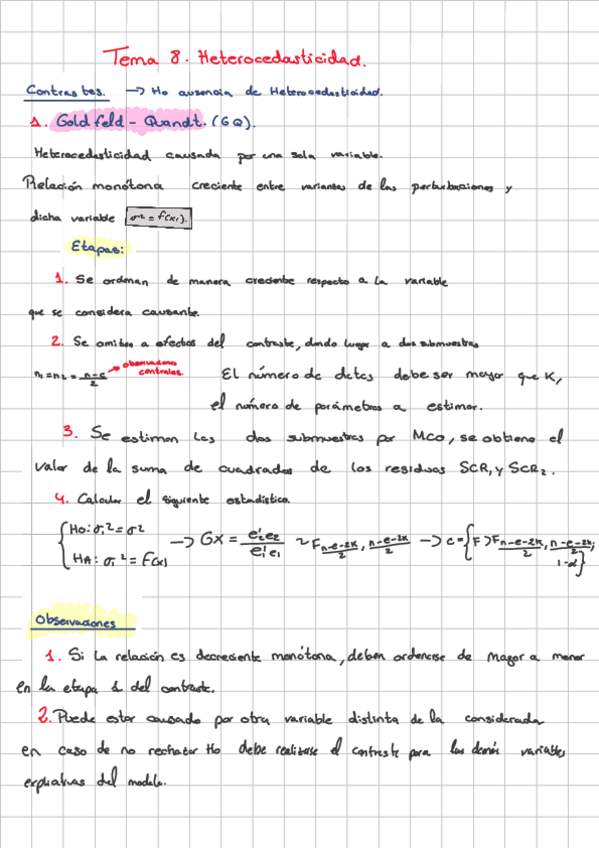 Tema 8. Heterocedasticidad.
Contrastes. → Ho ausencia de Heterocedasticidad.
1. Goldfeld - Quandt. (GQ).
Heterocedasticidad causada por una sola variable.
Relación monótona creciente entre varianzas de las perturbaciones y
dicha variable σ² = f(xi).
Etapas:
1. Se ordenan de manera creciente respecto a la variable
que se considera causante.
2. Se omiten a efectos del contraste, dando lugar a dos submuestras
n₁=n₂ = (n-c)/2 → observaciones centrales.
El número de datos debe ser mayor que K,
el número de parámetros a estimar.
3. Se estiman las dos submuestras por MCO, se obtiene el
valor de la suma de cuadrados de los residuos SCR₁ y SCR₂.
4. Calcular el siguiente estadístico.
{ Ho: σi² = σ²
HA: σi² = F(x) → GX = e₂'e₂ / e₁'e₁ ~ F (n-c-2K)/2, (n-c-2K)/2 → C = {F > F (n-c-2K)/2, (n-c-2K)/2; 1-α}
Observaciones
1. Si la relación es decreciente monótona, deben ordenarse de mayor a menor
en la etapa 1 del contraste.
2. Puede estar causado por otra variable distinta de la considerada
en caso de no rechazar Ho debe realizarse el contraste para las demás variables
explicativas del modelo.